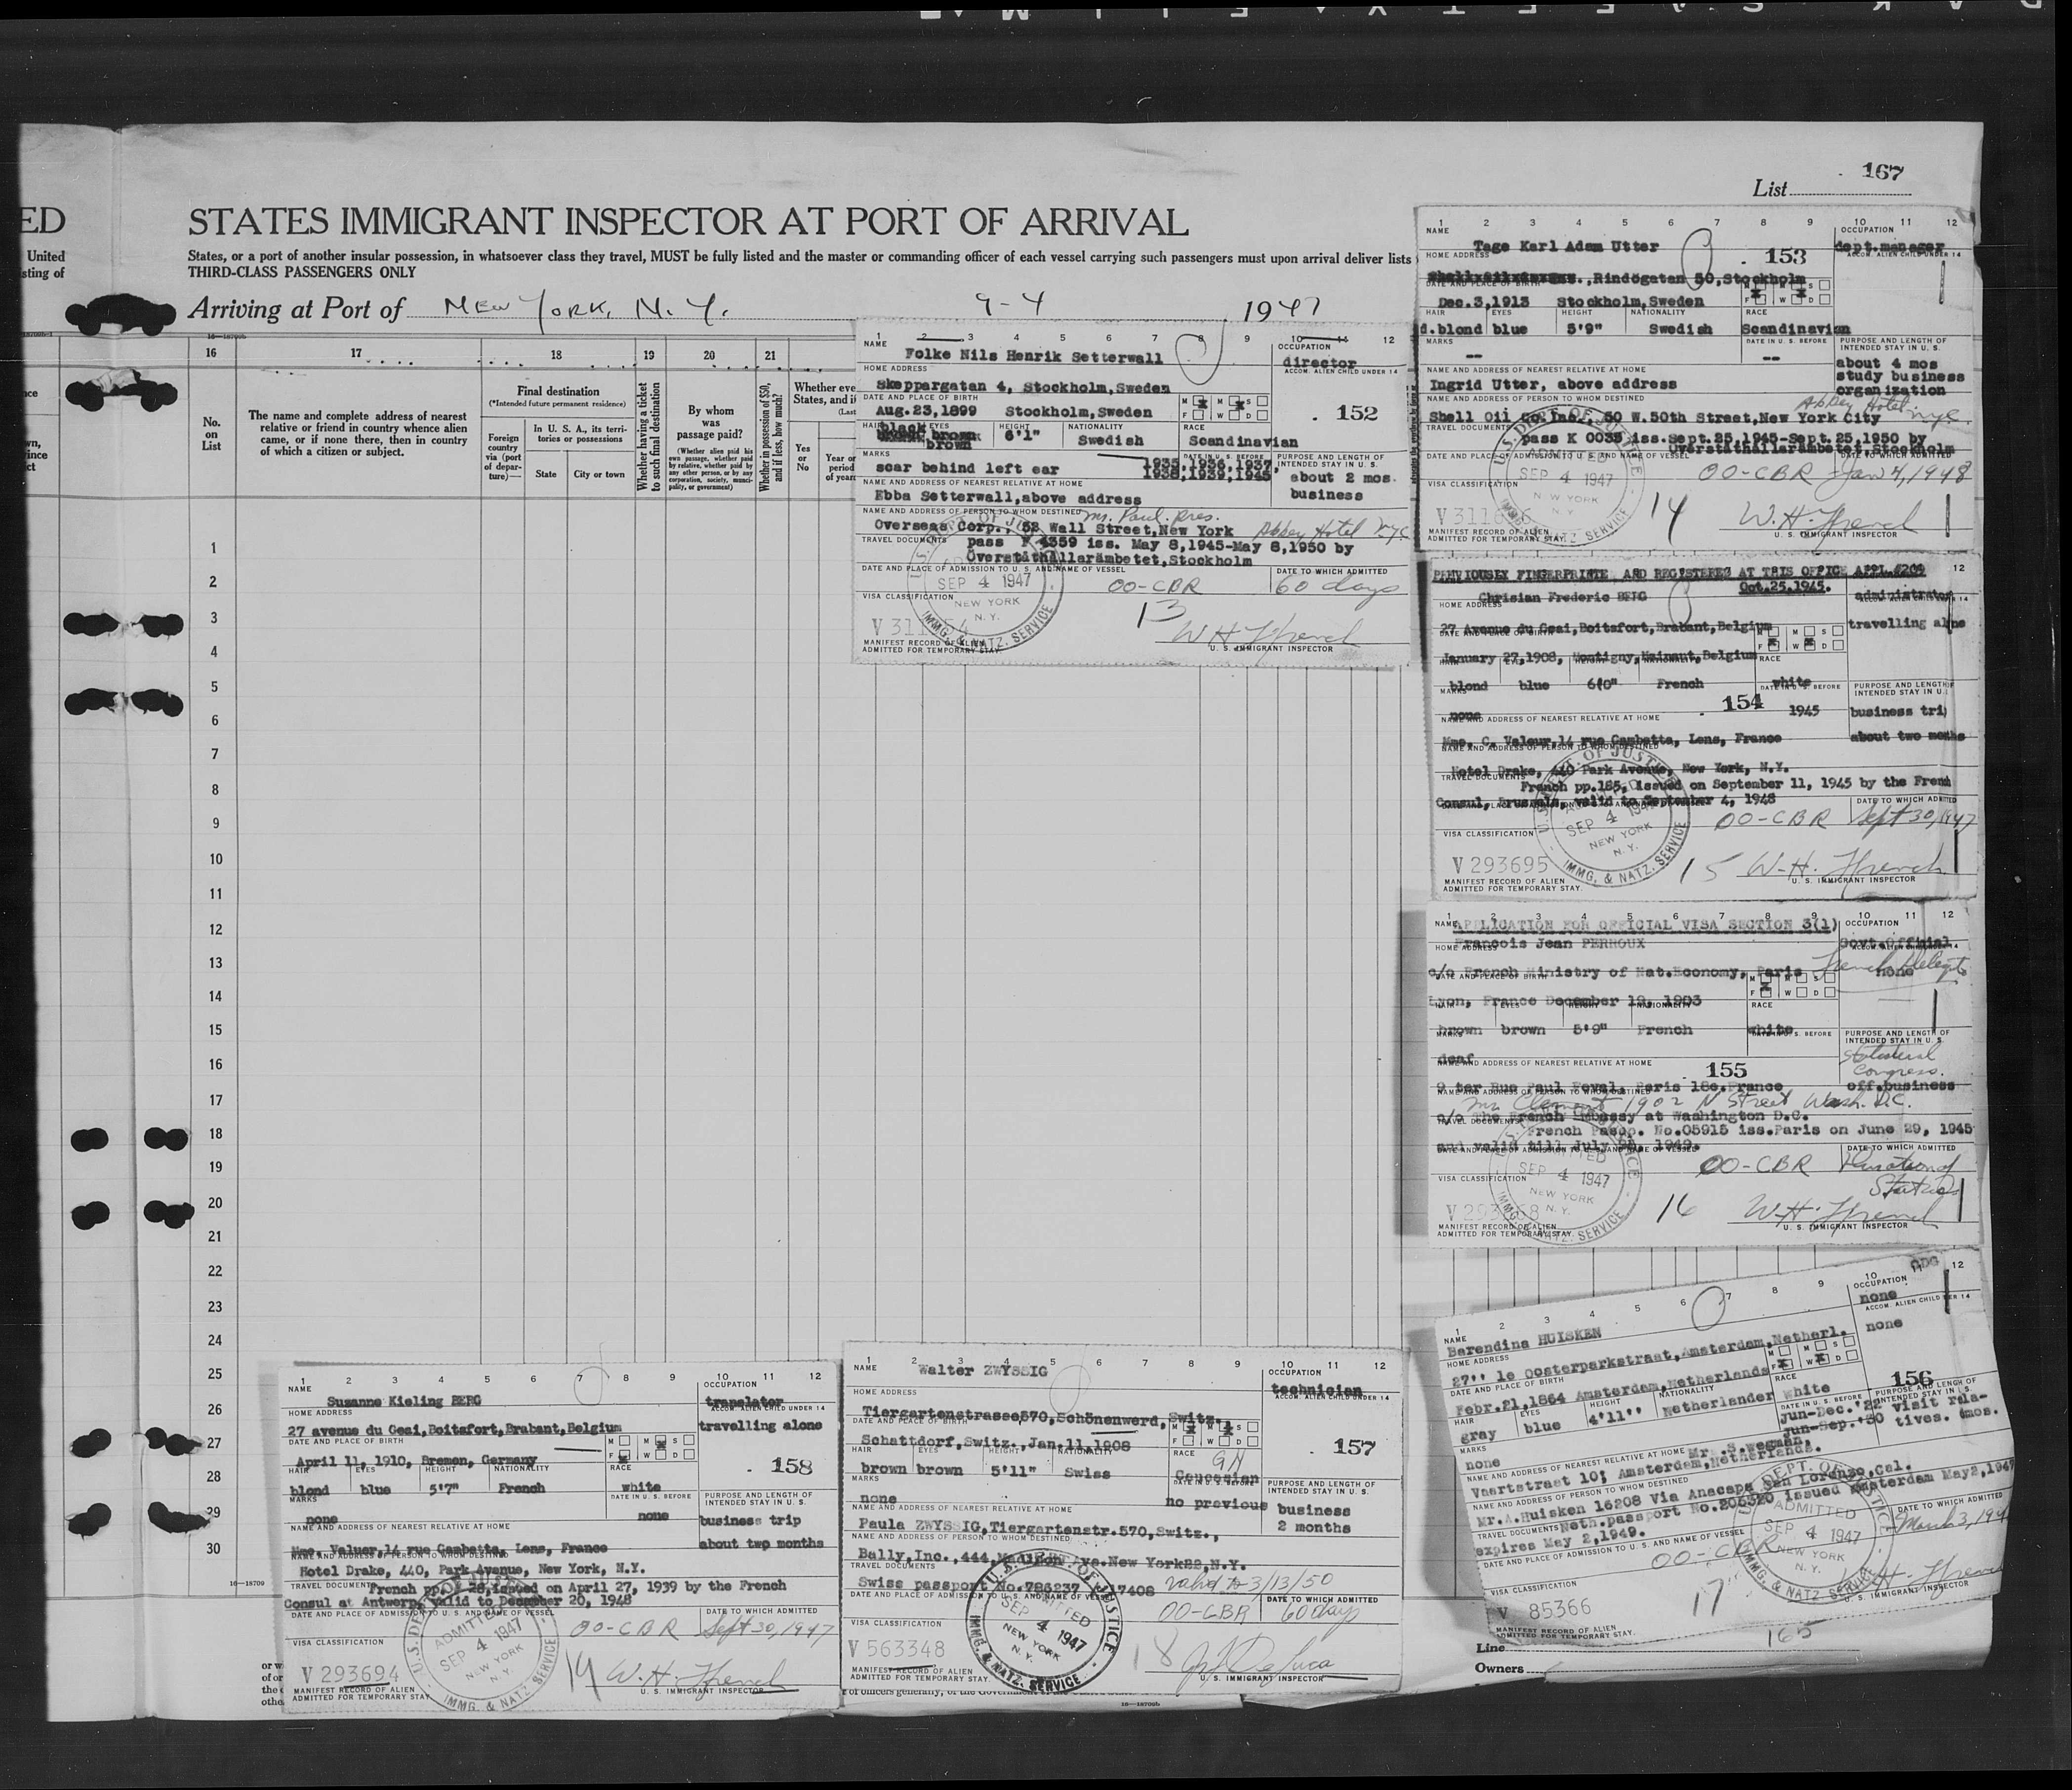 167
List
ED
STATES IMMIGRANT INSPECTOR AT PORT OF ARRIVAL
United
States, or a port of another insular possession, in whatsoever class they travel, MUST be fully listed and the master or commanding officer of each vessel carrying such passengers must upon arrival deliver lists
sting of
THIRD-CLASS PASSENGERS ONLY
Arriving at Port of New York, N. Y. 9-4 1947
16 17 18 19 20 21
No. on List
The name and complete address of nearest relative or friend in country whence alien came, or if none there, then in country of which a citizen or subject.
Final destination
(*Intended future permanent residence)
Foreign country via (port of departure)—
In U. S. A., its territories or possessions
State
City or town
Whether having a ticket to such final destination
By whom was passage paid?
(Whether alien paid his own passage, whether paid by relative, whether paid by any other person, or by any corporation, society, municipality, or government)
Whether in possession of $50, and if less, how much?
Whether eve
States, and i
(Last
Yes or No
Year or period of years
1
2
3
4
5
6
7
8
9
10
11
12
13
14
15
16
17
18
19
20
21
22
23
24
25
26
27
28
29
30
1 2 3 4 5 6 7 8 9 10 11 12
NAME
Folke Nils Henrik Setterwall
OCCUPATION
director
HOME ADDRESS
ACCOM. ALIEN CHILD UNDER 14
Skeppargatan 4, Stockholm, Sweden
DATE AND PLACE OF BIRTH
Aug.23,1899 Stockholm,Sweden
M F M W S D
152
HAIR EYES HEIGHT NATIONALITY RACE
black brown 6'1" Swedish Scandinavian
brown
MARKS
DATE IN U. S. BEFORE
PURPOSE AND LENGTH OF INTENDED STAY IN U. S.
scar behind left ear
1935,1936,1937,
1938,1939,1945
about 2 mos.
business
NAME AND ADDRESS OF NEAREST RELATIVE AT HOME
Ebba Setterwall,above address
NAME AND ADDRESS OF PERSON TO WHOM DESTINED
Mr. Paul. pres.
Overseas Corp., 52 Wall Street,New York Abbey Hotel NYC
TRAVEL DOCUMENTS
pass F 4359 iss. May 8,1945-May 8,1950 by
Överståthållarämbetet,Stockholm
DATE AND PLACE OF ADMISSION TO U. S. AND NAME OF VESSEL
DATE TO WHICH ADMITTED
SEP 4 1947
NEW YORK N. Y.
IMMG. & NATZ. SERVICE
OO-CBR 60 days
VISA CLASSIFICATION
13
W H French
MANIFEST RECORD OF ALIEN ADMITTED FOR TEMPORARY STAY.
U. S. IMMIGRANT INSPECTOR
1 2 3 4 5 6 7 8 9 10 11 12
NAME
Tage Karl Adam Utter
OCCUPATION
dept.manager
153
HOME ADDRESS
ACCOM. ALIEN CHILD UNDER 14
Rindögatan 50,Stockholm
DATE AND PLACE OF BIRTH
Dec.3,1913 Stockholm,Sweden
HAIR EYES HEIGHT NATIONALITY RACE
d.blond blue 5'9" Swedish Scandinavian
MARKS
DATE IN U. S. BEFORE
PURPOSE AND LENGTH OF INTENDED STAY IN U. S.
-- --
about 4 mos
study business
organization
NAME AND ADDRESS OF NEAREST RELATIVE AT HOME
Ingrid Utter, above address
NAME AND ADDRESS OF PERSON TO WHOM DESTINED
Abbey Hotel NYC
Shell Oil Co.Inc., 50 W.50th Street,New York City
TRAVEL DOCUMENTS
pass K 0035 iss.Sept.25,1945-Sept.25,1950 by
Överståthållarämbetet,Stockholm
DATE TO WHICH ADMITTED
SEP 4 1947
NEW YORK N. Y.
OO-CBR Jan 4, 1948
VISA CLASSIFICATION
14
W. H. French
MANIFEST RECORD OF ALIEN ADMITTED FOR TEMPORARY STAY.
U. S. IMMIGRANT INSPECTOR
PREVIOUSLY FINGERPRINTED AND REGISTERED AT THIS OFFICE APPL.4209
Oct.25.1945.
Chrisian Frederic BERG
administrator
HOME ADDRESS
27 Avenue du Geai,Boitsfort,Brabant,Belgium
travelling alone
January 27,1908, Montigny,Hainaut,Belgium
RACE
blond blue 6'0" French white
PURPOSE AND LENGTH OF INTENDED STAY IN U.
none
154
1945
business trip
NAME AND ADDRESS OF NEAREST RELATIVE AT HOME
Mme. C. Valeur,14 rue Gambetta, Lens, France
about two months
NAME AND ADDRESS OF PERSON TO WHOM DESTINED
Hotel Drake, 440 Park Avenue, New York, N.Y.
TRAVEL DOCUMENTS
French pp.185, issued on September 11, 1945 by the French
Consul, Brussels, valid to September 4, 1948
DATE TO WHICH ADMITTED
SEP 4 1947
NEW YORK N. Y.
IMMG. & NATZ. SERVICE
OO-CBR Sept 30, 1947
VISA CLASSIFICATION
V 293695
15
W. H. French
MANIFEST RECORD OF ALIEN ADMITTED FOR TEMPORARY STAY.
U. S. IMMIGRANT INSPECTOR
1 2 3 4 5 6 7 8 9 10 11 12
NAME
APPLICATION FOR OFFICIAL VISA SECTION 3(1)
OCCUPATION
Francois Jean PERROUX
Govt.Official
HOME ADDRESS
c/o French Ministry of Nat.Economy, Paris
none
French Delegate
Lyon, France December 19, 1903
RACE
brown brown 5'9" French white
PURPOSE AND LENGTH OF INTENDED STAY IN U. S.
deaf
Statistical Congress.
NAME AND ADDRESS OF NEAREST RELATIVE AT HOME
155
9 ter Rue Paul Feval, Paris 18e.France
off.business
Mr Clement 1902 N Street Wash. D.C.
c/o The French Embassy at Washington D.C.
TRAVEL DOCUMENTS
French Passp. No.05915 iss.Paris on June 29, 1945
and valid till July 28, 1949.
DATE TO WHICH ADMITTED
SEP 4 1947
NEW YORK N. Y.
OO-CBR Duration of Status
VISA CLASSIFICATION
16
W. H. French
MANIFEST RECORD OF ALIEN ADMITTED FOR TEMPORARY STAY.
U. S. IMMIGRANT INSPECTOR
1 2 3 4 5 6 7 8 9 10 11 12
NAME
Barendina HUISKEN
OCCUPATION
none
HOME ADDRESS
ACCOM. ALIEN CHILD UNDER 14
27'' 1e Oosterparkstraat,Amsterdam,Netherl.
none
DATE AND PLACE OF BIRTH
Febr.21,1864 Amsterdam,Netherlands
156
HAIR EYES HEIGHT NATIONALITY RACE
gray blue 4'11'' Netherlander white
MARKS
none
DATE IN U. S. BEFORE
Jun-Dec.'22
Jun-Sep.'30
PURPOSE AND LENGTH OF INTENDED STAY IN U. S.
visit relatives. 6mos.
NAME AND ADDRESS OF NEAREST RELATIVE AT HOME
Mr. S.Wegman,
Vaartstraat 10; Amsterdam,Netherlands.
NAME AND ADDRESS OF PERSON TO WHOM DESTINED
Mr.A.Huisken 16208 Via Anacapa San Lorenzo,Cal.
TRAVEL DOCUMENTS
Neth.passport No.205320 issued Amsterdam May2,1947
expires May 2,1949.
DATE AND PLACE OF ADMISSION TO U. S. AND NAME OF VESSEL
DATE TO WHICH ADMITTED
ADMITTED
SEP 4 1947
NEW YORK N.Y.
OO-CBR March 3, 194
VISA CLASSIFICATION
V 85366
17
MANIFEST RECORD OF ALIEN ADMITTED FOR TEMPORARY STAY.
U. S. IMMIGRANT INSPECTOR
165
Line
Owners
1 2 3 4 5 6 7 8 9 10 11 12
NAME
Walter ZWYSSIG
OCCUPATION
technician
HOME ADDRESS
ACCOM. ALIEN CHILD UNDER 14
Tiergartenstrasse570,Schönenwerd,Switz.
DATE AND PLACE OF BIRTH
Schattdorf,Switz.,Jan.11,1908
157
HAIR EYES HEIGHT NATIONALITY RACE
brown brown 5'11" Swiss Caucasian
MARKS
none
no previous
PURPOSE AND LENGTH OF INTENDED STAY IN U. S.
business
2 months
NAME AND ADDRESS OF NEAREST RELATIVE AT HOME
Paula ZWYSSIG,Tiergartenstr.570,Switz.,
NAME AND ADDRESS OF PERSON TO WHOM DESTINED
Bally,Inc.,444,Madison Ave.New York22,N.Y.
TRAVEL DOCUMENTS
Swiss passport No.786237 valid to 3/13/50
DATE AND PLACE OF ADMISSION TO U. S. AND NAME OF VESSEL
DATE TO WHICH ADMITTED
ADMITTED
SEP 4 1947
NEW YORK N. Y.
IMMG. & NATZ. SERVICE
OO-CBR 60 days
VISA CLASSIFICATION
V 563348
18
MANIFEST RECORD OF ALIEN ADMITTED FOR TEMPORARY STAY.
U. S. IMMIGRANT INSPECTOR
16—18700b
1 2 3 4 5 6 7 8 9 10 11 12
NAME
Suzanne Kieling BERG
OCCUPATION
translator
HOME ADDRESS
ACCOM. ALIEN CHILD UNDER 14
27 avenue du Geai,Boitsfort,Brabant,Belgium
travelling alone
DATE AND PLACE OF BIRTH
April 11, 1910, Bremen, Germany
158
HAIR EYES HEIGHT NATIONALITY RACE
blond blue 5'7" French white
MARKS
DATE IN U. S. BEFORE
PURPOSE AND LENGTH OF INTENDED STAY IN U. S.
none none
business trip
about two months
NAME AND ADDRESS OF NEAREST RELATIVE AT HOME
Mme. Valuer,14 rue Gambetta, Lens, France
NAME AND ADDRESS OF PERSON TO WHOM DESTINED
Hotel Drake, 440, Park Avenue, New York, N.Y.
TRAVEL DOCUMENTS
French pp. 28,issued on April 27, 1939 by the French
Consul at Antwerp, valid to December 20, 1948
DATE AND PLACE OF ADMISSION TO U. S. AND NAME OF VESSEL
DATE TO WHICH ADMITTED
ADMITTED
SEP 4 1947
NEW YORK N. Y.
IMMG. & NATZ. SERVICE
OO-CBR Sept 30, 1947
VISA CLASSIFICATION
V 293694
19
W. H. French
MANIFEST RECORD OF ALIEN ADMITTED FOR TEMPORARY STAY.
U. S. IMMIGRANT INSPECTOR